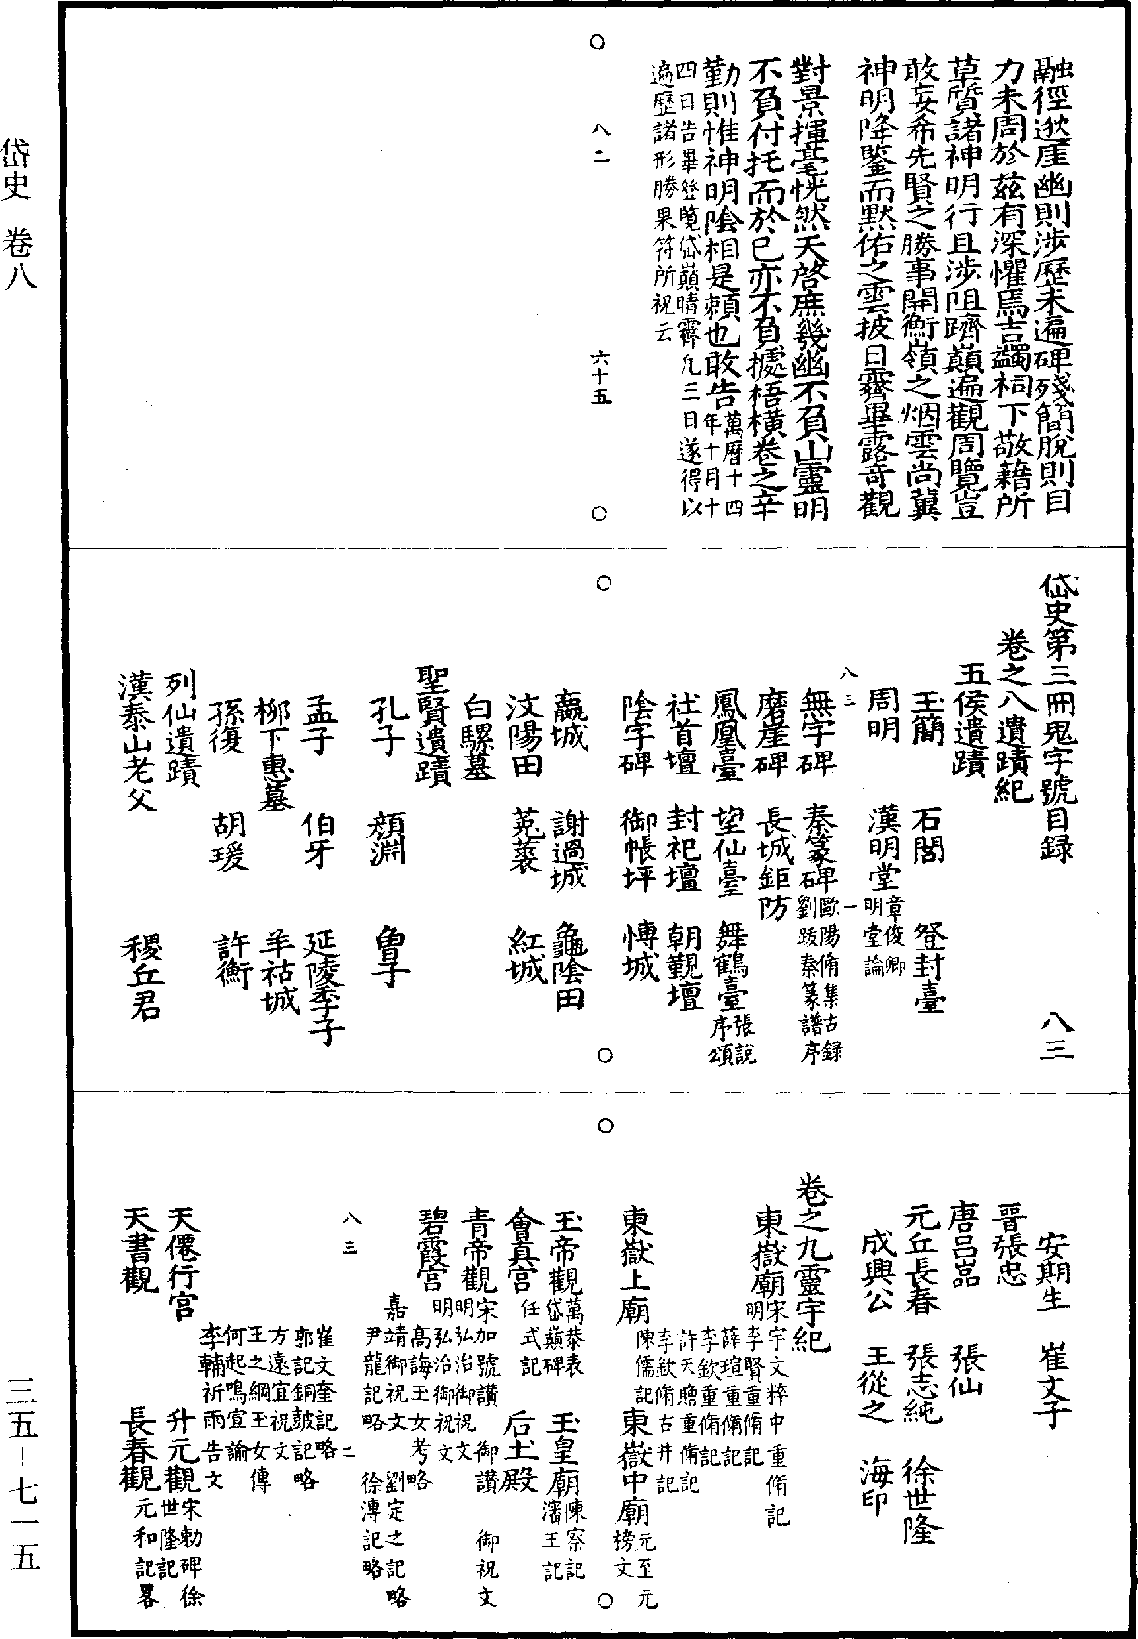 岱史 卷八
三五－七一五
融徑逖崖幽則涉歷未遍碑殘簡脫則目
力未周於茲有深懼焉吉蠲祠下敬藉所
草質諸神明行且涉阻躋巔遍觀周覽豈
敢妄希先賢之勝事開衡嶺之烟雲尚冀
神明降鑒而默佑之雲披日霽畢露奇觀
對景揮毫恍然天啓庶幾幽不負山靈明
不負付托而於已亦不負據梧橫卷之辛
勤則惟神明陰相是賴也敢告萬曆十四
年十月十
四日告畢登覽岱巔晴霽凡三日遂得以
遍歷諸形勝果符所祝云
八二 六十五
岱史第三冊鬼字號目録 八三
卷之八遺蹟紀
五侯遺蹟
玉簡 石閭 登封臺
周明 漢明堂章俊卿
明堂論
八三 一
無字碑 秦篆碑歐陽脩集古録
劉跂秦篆譜序
磨崖碑 長城鉅防
鳳凰臺 望仙臺 舞鶴臺張說
序頌
社首壇 封祀壇 朝覲壇
陰字碑 御帳坪 愽城
嬴城 謝過城 龜陰田
汶陽田 菟裘 紅城
白騾墓
聖賢遺蹟
孔子 顏淵 魯子
孟子 伯牙 延陵季子
柳下惠墓 羊祜城
孫復 胡瑗 許衡
列仙遺蹟
漢泰山老父 稷丘君
安期生 崔文子
晋張忠
唐呂嵓 張仙
元丘長春 張志純 徐世隆
成興公 王從之 海印
卷之九靈宇紀
東嶽廟宋宇文粹中重脩記
明李賢重脩記
薛瑄重脩記
李欽重脩記
許天贈重脩記
李欽脩古井記
陳儒記
東嶽上廟 東嶽中廟元至元
榜文
玉帝觀萬恭表
岱巔碑 玉皇廟陳察記
瀋王記
會真宮任式記 后土殿
青帝觀宋加號讚 御讚 御祝文
明弘治御祝文
明弘治御祝文
碧霞宮高誨玉女考略
嘉靖御祝文 劉定之記略
尹龍記略 徐溥記略
八三 二
崔文奎記略
郭記銅皷記略
方遠宜祝文
王之綱玉女傳
何起鳴宣諭
李輔祈雨告文
天僊行宮 升元觀宋勅碑徐
世隆記
天書觀 長春觀元和記畧